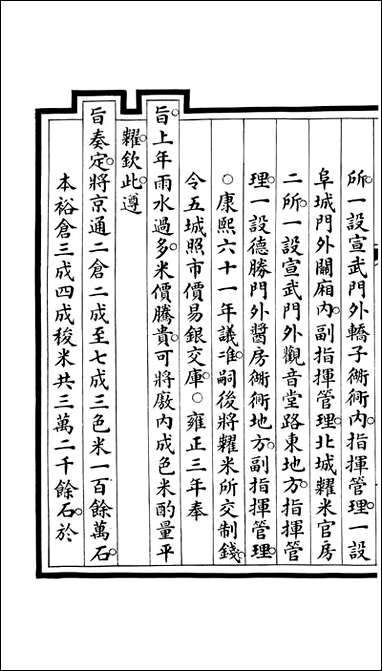 所一設宣武門外轎子衚衕內指揮管理一設
阜城門外關廂內副指揮管理北城糶米官房
二所一設宣武門外觀音堂路東地方指揮管
理一設德勝門外醬房衚衕地方副指揮管理
○康熙六十一年議准嗣後將糶米所交制錢
令五城照市價易銀交庫○雍正三年奉
旨上年雨水過多米價騰貴可將廒內成色米酌量平
糶欽此遵
旨奏定將京通二倉二成至七成三色米一百餘萬石
本裕倉三成四成稄米共三萬二千餘石於